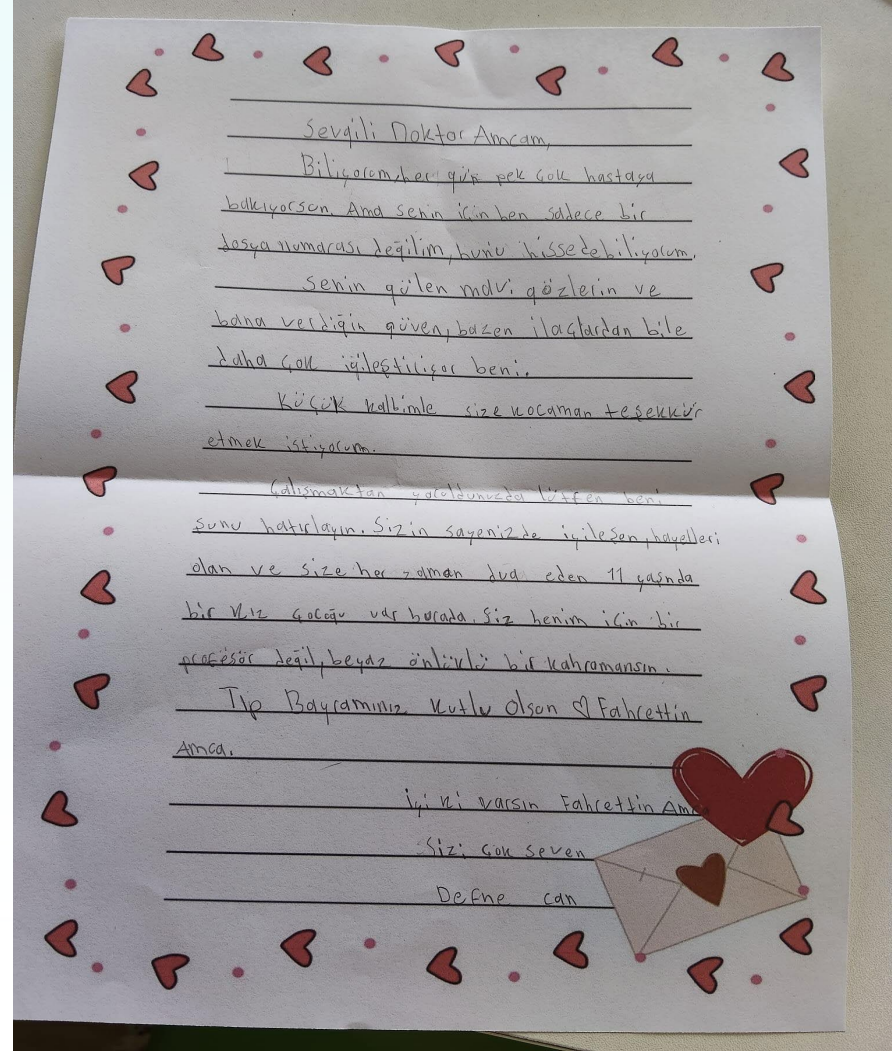 Sevgili Doktor Amcam,
Biliyorum, her gün pek çok hastaya
bakıyorsun. Ama senin için ben sadece bir
dosya numarası değilim, bunu hissedebiliyorum.
Senin gülen mavi gözlerin ve
bana verdiğin güven, bazen ilaçlardan bile
daha çok iyileştiriyor beni.
Küçük kalbimle size kocaman teşekkür
etmek istiyorum.
Çalışmaktan yorulduğunuzda lütfen beni
şunu hatırlayın. Sizin sayenizde iyileşen, hayelleri
olan ve size her zaman dua eden 11 yaşında
bir kız çocoğu var burada. Siz benim için bir
profesör değil, beyaz önlüklü bir kahramansın.
Tıp Bayramınız Kutlu Olsun ♡ Fahrettin
Amca.
İyi ki varsın Fahrettin Am
Sizi çok seven
Defne can